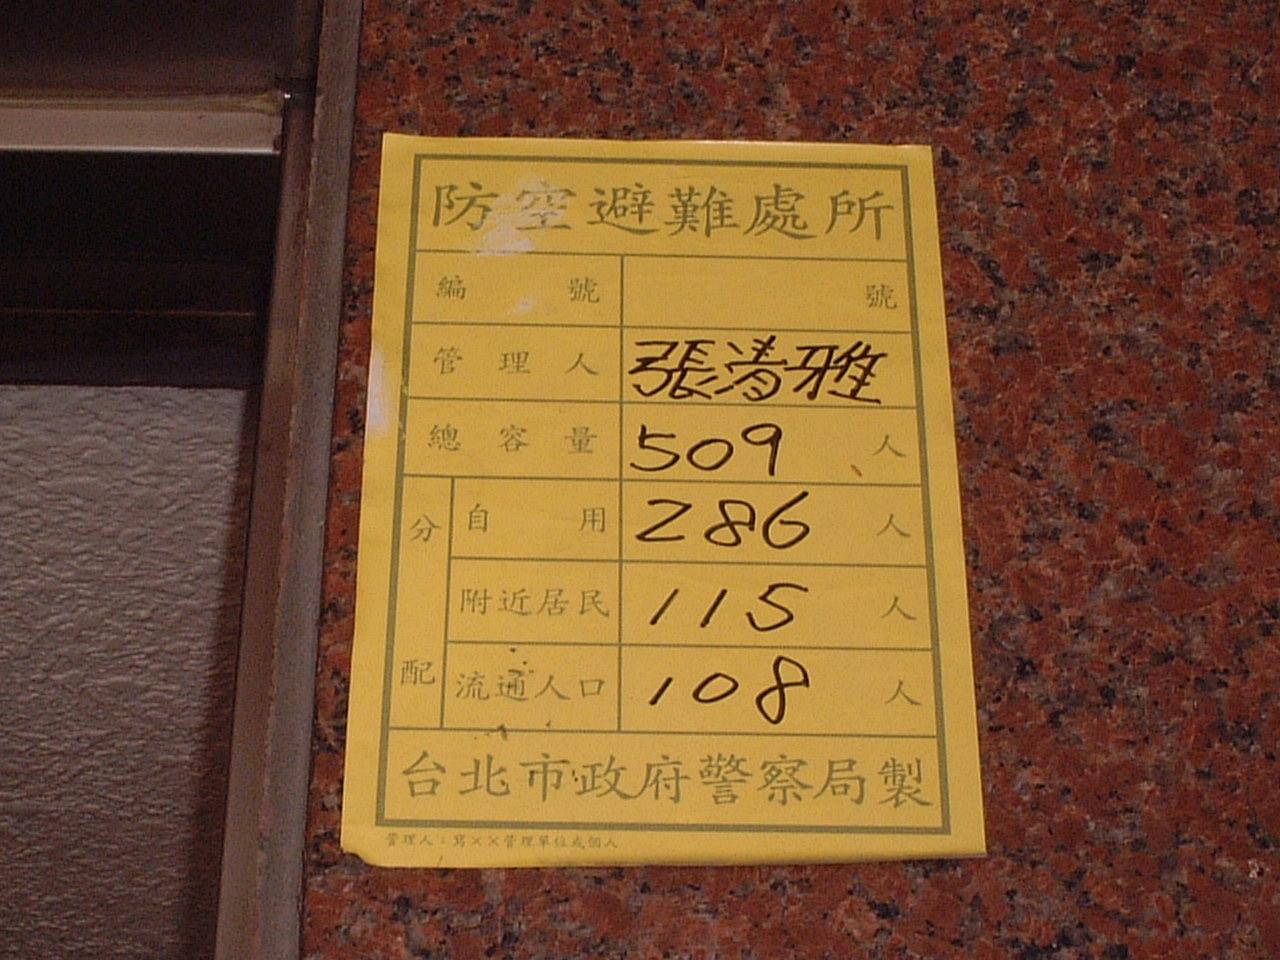 防空避難處所
編號 號
管理人 張清雅
總容量 509 人
分配
自用 286 人
附近居民 115 人
流通人口 108 人
台北市政府警察局製
管理人：寫××管理單位或個人